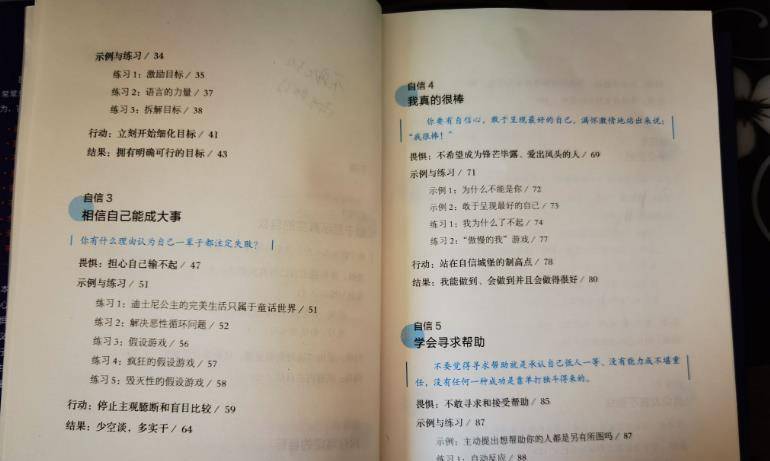 示例与练习 / 34
练习1：激励目标 / 35
练习2：语言的力量 / 37
练习3：拆解目标 / 38
行动：立刻开始细化目标 / 41
结果：拥有明确可行的目标 / 43
自信 3
相信自己能成大事
你有什么理由认为自己一辈子都注定失败？
畏惧：担心自己输不起 / 47
示例与练习 / 51
练习1：迪士尼公主的完美生活只属于童话世界 / 51
练习2：解决恶性循环问题 / 52
练习3：假设游戏 / 56
练习4：疯狂的假设游戏 / 57
练习5：毁灭性的假设游戏 / 58
行动：停止主观臆断和盲目比较 / 59
结果：少空谈，多实干 / 64
自信 4
我真的很棒
你要有自信心，敢于呈现最好的自己，满怀激情地站出来说：
“我很棒！”
畏惧：不希望成为锋芒毕露、爱出风头的人 / 69
示例与练习 / 71
示例1：为什么不能是你 / 72
示例2：敢于呈现最好的自己 / 73
练习1：我为什么了不起 / 74
练习2：“傲慢的我”游戏 / 77
行动：站在自信城堡的制高点 / 78
结果：我能做到、会做到并且会做得很好 / 80
自信 5
学会寻求帮助
不要觉得寻求帮助就是承认自己低人一等、没有能力或不堪重
任，没有任何一种成功是靠单打独斗得来的。
畏惧：不敢寻求和接受帮助 / 85
示例与练习 / 87
示例：主动提出想帮助你的人都是另有所图吗 / 87
练习1：自动反应 / 88